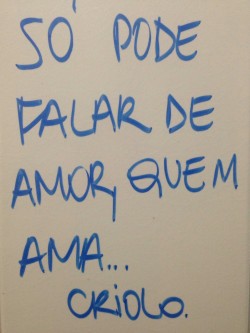 SÓ PODE
FALAR DE
AMOR, QUEM
AMA...
CRIOLO.